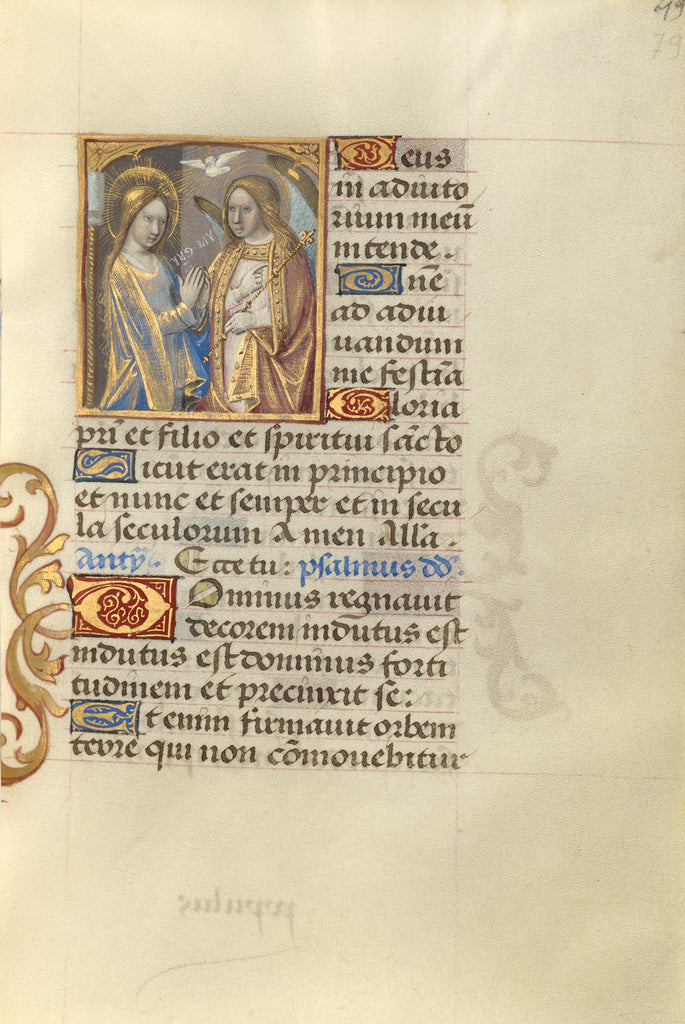 79
79
AVE GRA
Deus
in adiuto
rium meū
intende.
Dn̄e
ad adiu
uandum
me festīa
Gloria
pr̄i et filio et spiritui sāc̄to
Sicut erat in principio
et nunc et semper et in secu
la seculorum Amen All'a.
Antȳ. Ecce tu: psalmus dd̄.
Dominus regnauit
decorem indutus est
indutus est dominus forti
tudinem et precinxit se:
Et enim firmauit orbem
terre qui non cōmouebitur
populus